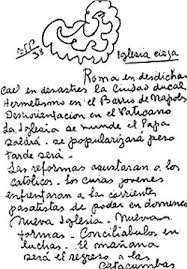 Iglesia ciega
Roma en desdichas
Cae en desastres la Ciudad ducal
Hermetismo en el Barrio de Napols
Desorientacion en el Vaticano
La Iglesia se hunde el Papa
saldrá - se popularizará pero
tarde será -
Las reformas asustaran a los
católicos - Los curas jovenes
enfrentaran a los curinantes
pasatistas de poder en dominio
Nueva Iglesia - Nuevas
formas - Conciliabulos en
luchas - El mañana
será el regreso a las
Catacumbas